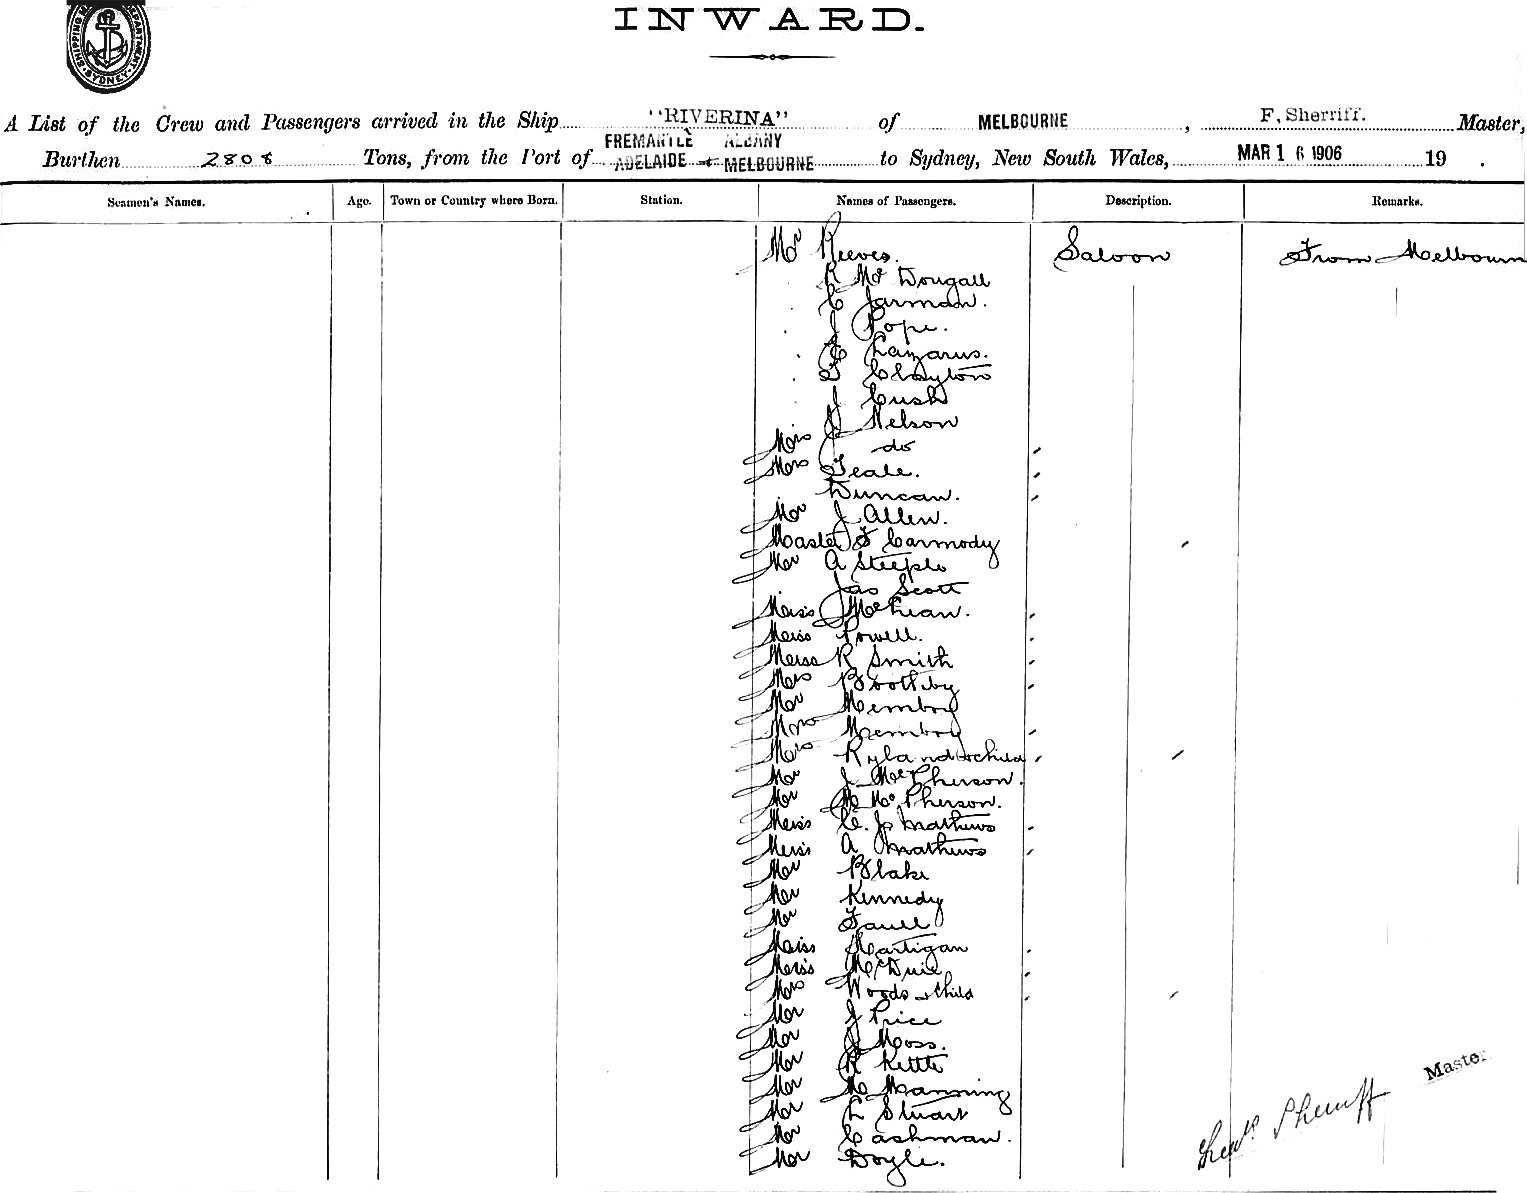 SHIPPING MASTER'S DEPARTMENT SYDNEY
INWARD.
A List of the Crew and Passengers arrived in the Ship "RIVERINA" of MELBOURNE, F. Sherriff. Master,
FREMANTLE ALBANY
Burthen 2808 Tons, from the Port of ADELAIDE + MELBOURNE to Sydney, New South Wales, MAR 16 1906 19 .
Seamen's Names. Age. Town or Country where Born. Station. Names of Passengers. Description. Remarks.
Mr Reeves. Saloon From Melbourn
R McDougall
C Jarman.
J Pope.
Lazarus.
F Clayton
J Cush
J Nelson
Mrs do
Mrs Teale.
Duncan.
Mr J Allen.
Master F Carmody
Mr A Steeple
Jas Scott
Miss McLean.
Miss Powell.
Miss R Smith
Mrs Boothby
Mr Membry
Mrs Membry
Mrs Ryland & child
Mr J McPherson.
Mr McPherson.
Miss C. J. Mathews
Miss A Mathews
Mr Blake
Mr Kennedy
Mr Faull
Miss Hartigan
Miss McDuie
Mrs Woods & child
Mr J Price
Mr J Moss.
Mr R Kettle
Mr M Manning
Mr L Stuart
Mr Cashman.
Mr Doyle.
Master
Sherriff